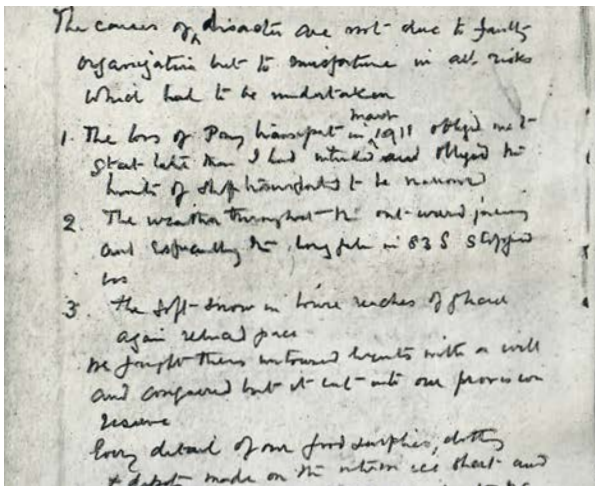 The causes of disaster are not due to faulty
organisation but to misfortune in all risks
which had to be undertaken
1. The loss of Pony transport in March 1911 obliged me to
start later than I had intended and obliged the
limits of stuff transported to be narrowed
2. The weather throughout the outward journey
and especially the long gale in 83 S stopped
us
3 The soft snow in lower reaches of glacier
again reduced pace
We fought these untoward events with a will
and conquered but it cut into our provision
reserve
Every detail of our food supplies, clothing
& depots made on the interior ice sheet and